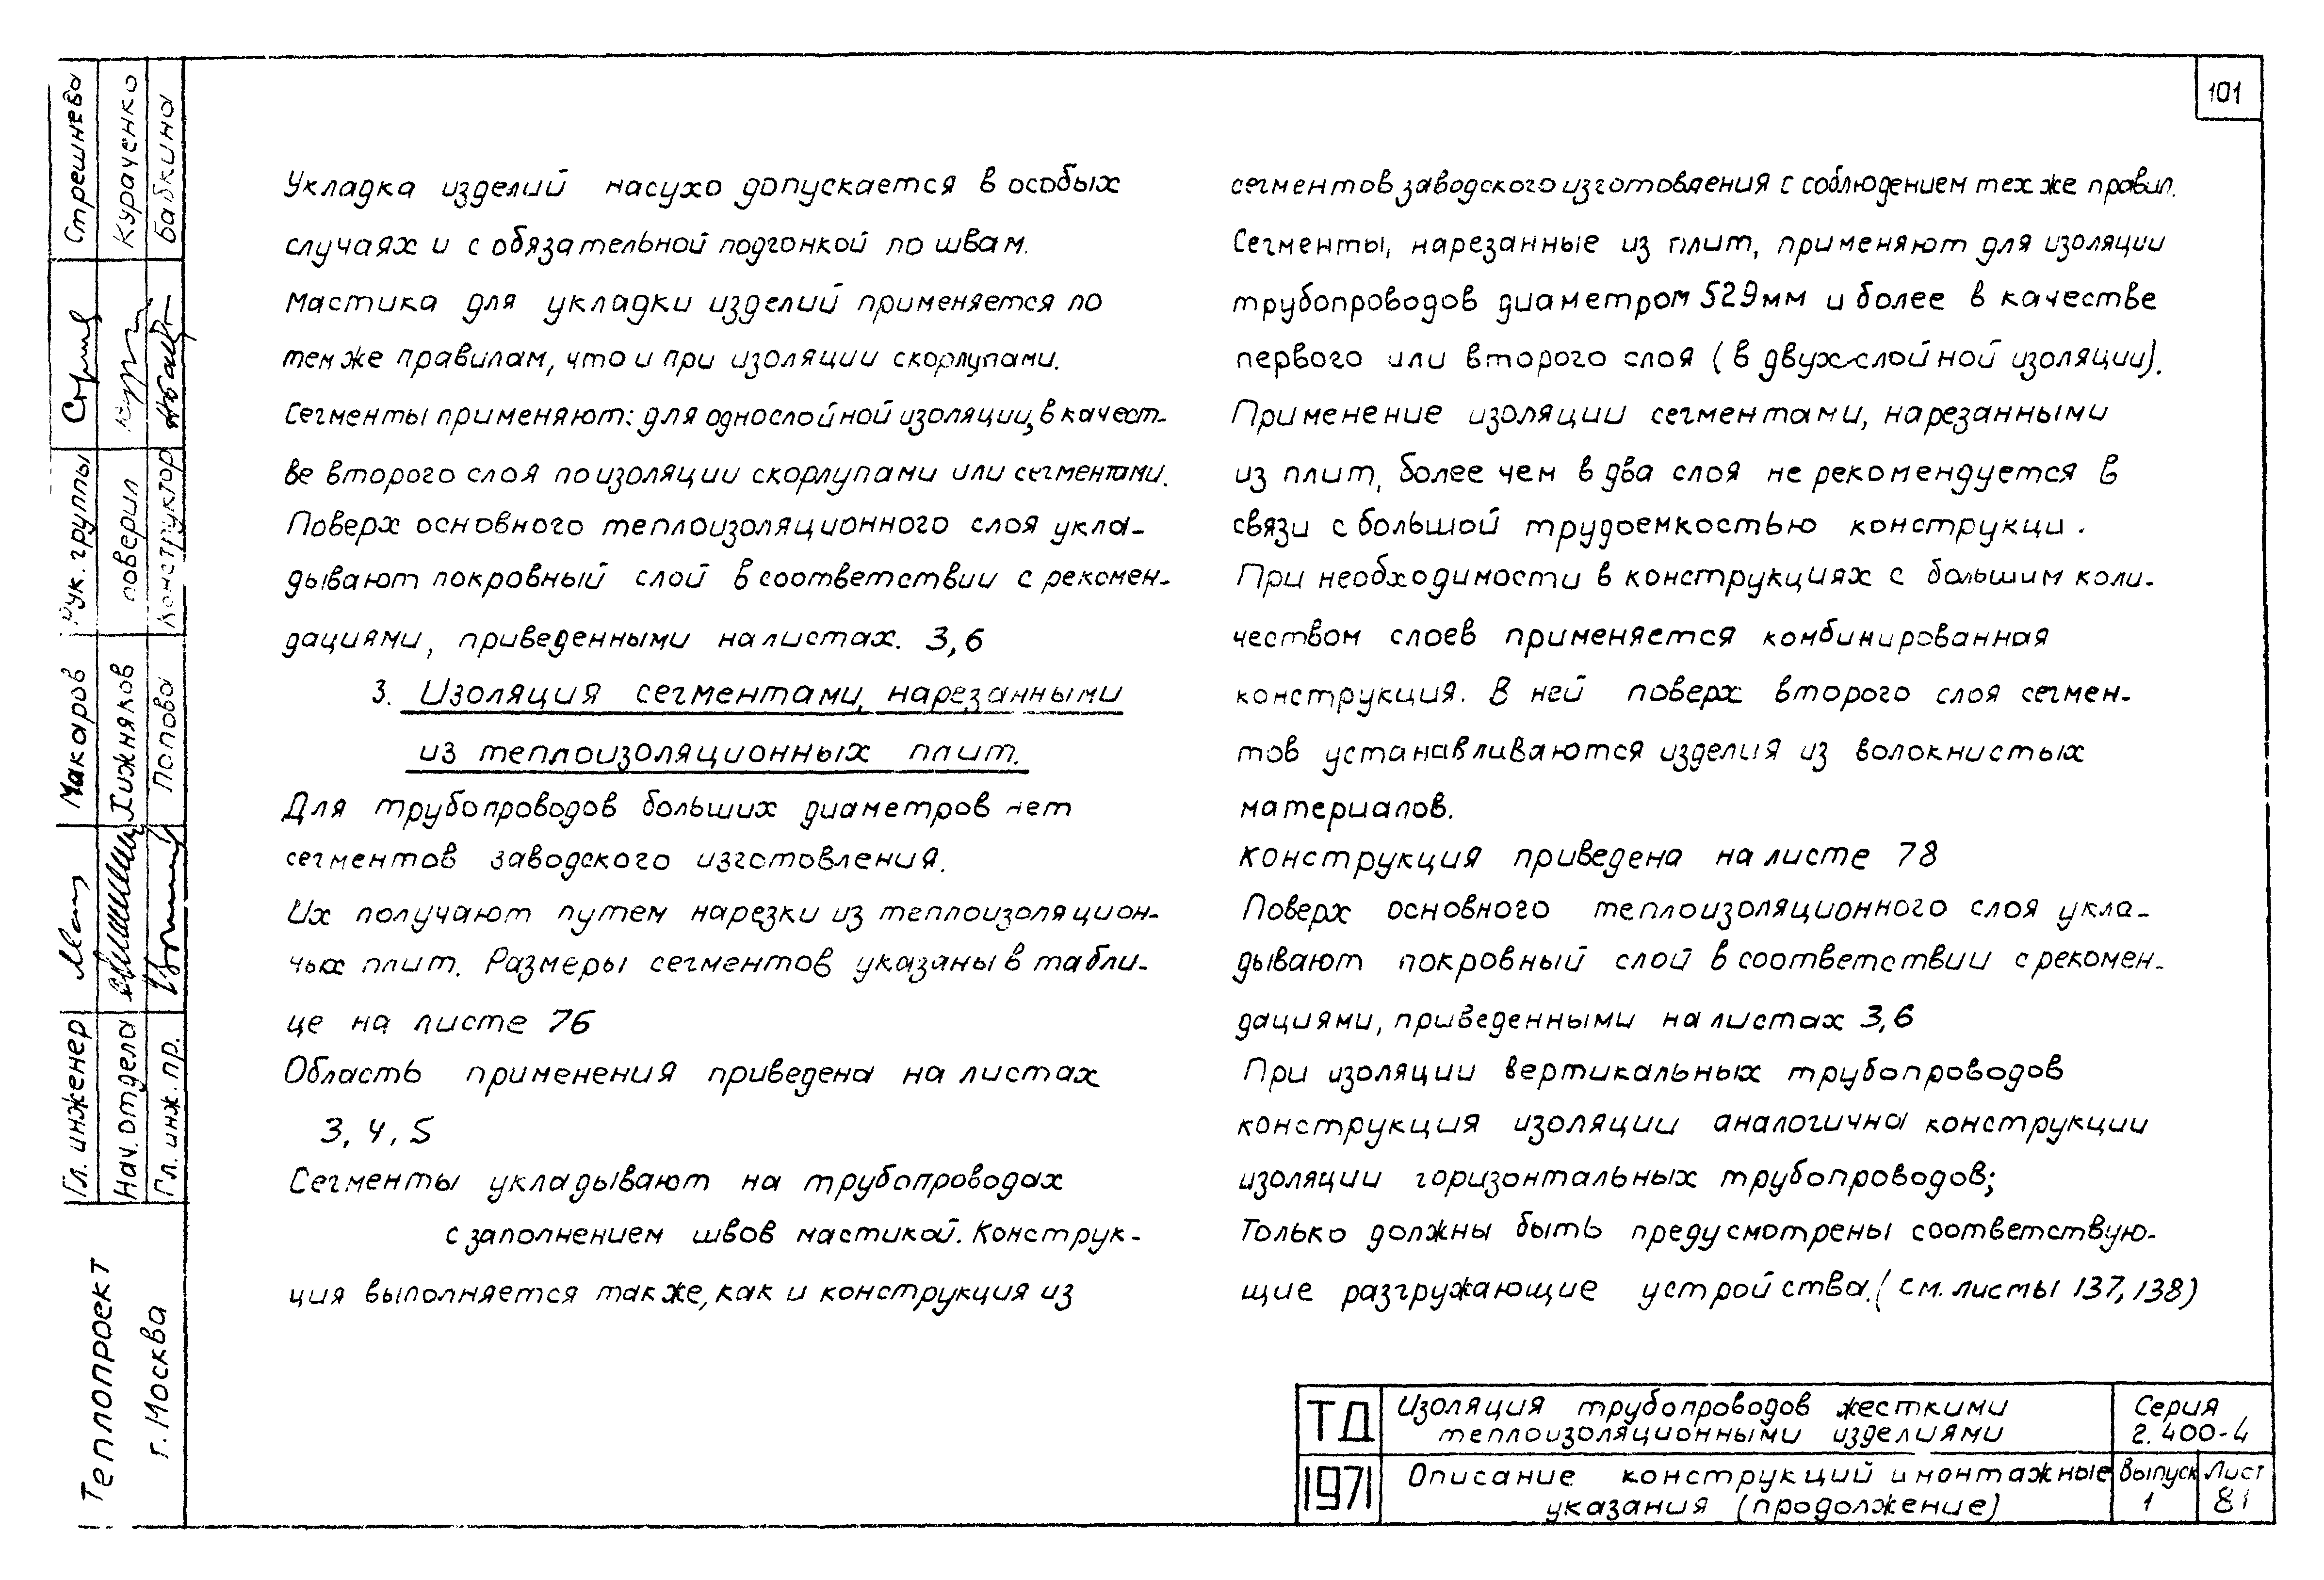 101
Укладка изделий насухо допускается в особых
случаях и с обязательной подгонкой по швам.
Мастика для укладки изделий применяется по
тем же правилам, что и при изоляции скорлупами.
Сегменты применяют: для однослойной изоляции, в качест-
ве второго слоя по изоляции скорлупами или сегментами.
Поверх основного теплоизоляционного слоя укла-
дывают покровный слой в соответствии с рекомен-
дациями, приведенными на листах. 3,6
3. Изоляция сегментами, нарезанными
из теплоизоляционных плит.
Для трубопроводов больших диаметров нет
сегментов заводского изготовления.
Их получают путем нарезки из теплоизоляцион-
ных плит. Размеры сегментов указаны в табли-
це на листе 76
Область применения приведена на листах
3, 4, 5
Сегменты укладывают на трубопроводах
с заполнением швов мастикой. Конструк-
ция выполняется также, как и конструкция из
сегментов заводского изготовления с соблюдением тех же правил.
Сегменты, нарезанные из плит, применяют для изоляции
трубопроводов диаметром 529 мм и более в качестве
первого или второго слоя (в двухслойной изоляции).
Применение изоляции сегментами, нарезанными
из плит, более чем в два слоя не рекомендуется в
связи с большой трудоемкостью конструкци.
При необходимости в конструкциях с большим коли-
чеством слоев применяется комбинированная
конструкция. В ней поверх второго слоя сегмен-
тов устанавливаются изделия из волокнистых
материалов.
Конструкция приведена на листе 78
Поверх основного теплоизоляционного слоя укла-
дывают покровный слой в соответствии с рекомен-
дациями, приведенными на листах 3,6
При изоляции вертикальных трубопроводов
конструкция изоляции аналогична конструкции
изоляции горизонтальных трубопроводов;
Только должны быть предусмотрены соответствую-
щие разгружающие устройства. (см. листы 137, 138)
Гл. инженер Макаров Рук. группы Стрешнева
Нач. отдела Хижняков поверил Кураченко
Гл. инж. пр. Попова Конструктор Бабкина
Теплопроект
г. Москва
ТД Изоляция трубопроводов жесткими
теплоизоляционными изделиями
Серия
2.400-4
1971 Описание конструкций и монтажные
указания (продолжение)
Выпуск
1
Лист
81